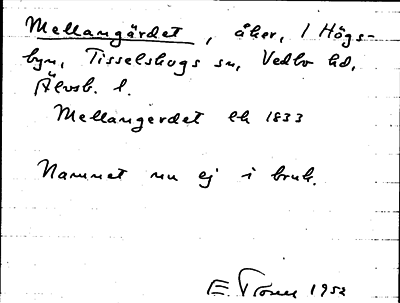 Mellangärdet, åker, 1 Högs-
byn, Tisselskogs sn, Vedbo hd,
Älvsb. l.
Mellangerdet lh 1833
Namnet nu ej i bruk.
E. 1952